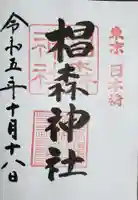 東京 日本橋
椙森神社
令和五年十月十八日